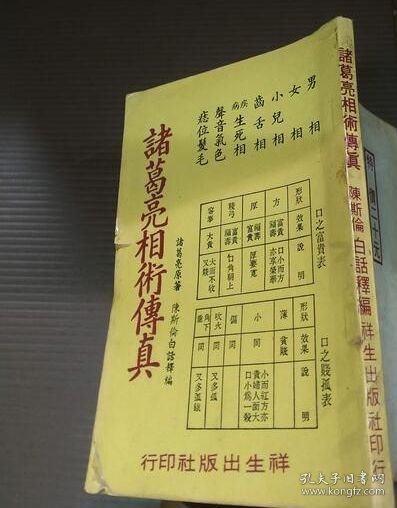 男相
女相
小兒相
齒舌相
疾病生死相
聲音氣色
痣位髮毛
諸葛亮相術傳真
諸葛亮原著
陳斯倫白話釋編
口之富貴表
形狀 效果 說明
方 富貴福壽 口小而方亦享榮華
厚 福壽富貴 厚要寬
稜弓 富貴福壽 勾角朝上
容拳 大貴 大而不收又賤
口之賤孤表
形狀 效果 說明
薄 貧賤
小 同 小而紅方亦貴婦人面大口小為一殺
偏 同
吹火 同 又多孤
角下垂 同 又多孤
祥生出版社印行
諸葛亮相術傳真 陳斯倫白話釋編 祥生出版社印行
孔夫子旧书网